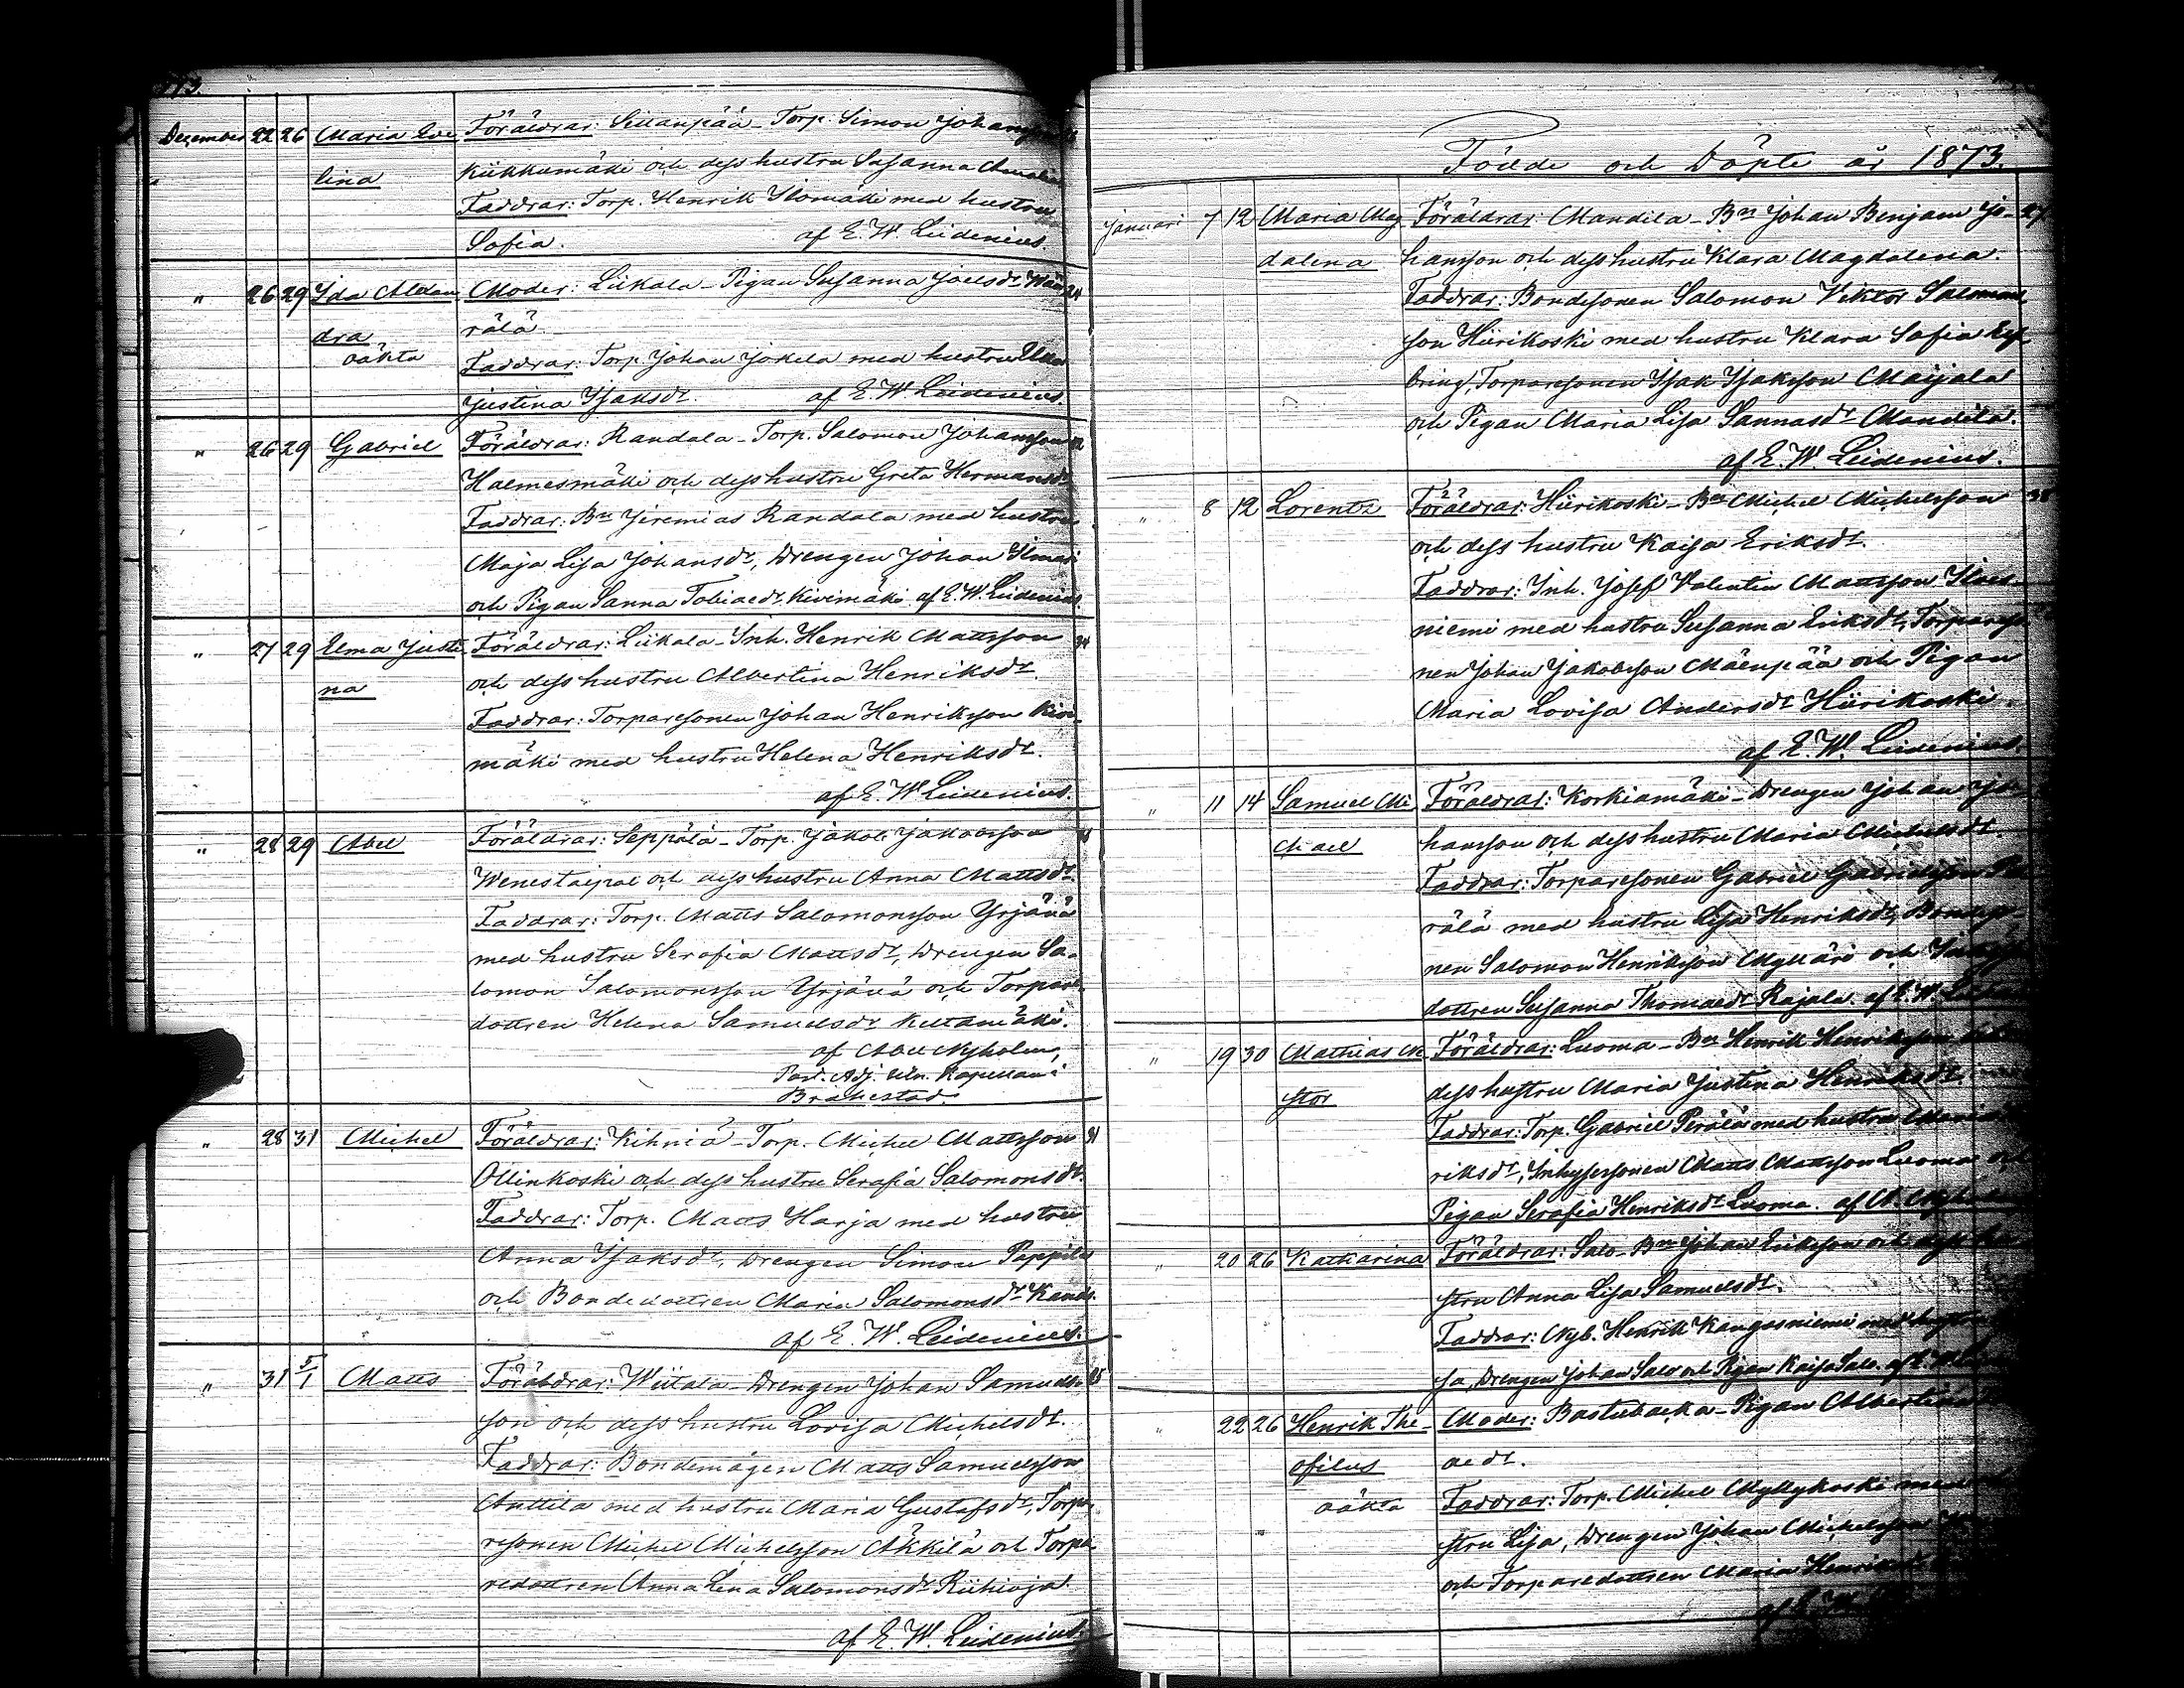 December 22 26 Maria Eve Föräldrar: Sillanpää - Torp. Simon Johansson
lina Kiikkumäki och dess hustru Susanna Amalia
Faddrar: Torp. Henrik Ylömäki med hustru
Sofia. af E. W. Leidenius.
" 26 29 Ida Alexan Moder: Liikala - Pigan Susanna Joelsdr 24
dra rälä.
oäkta Faddrar: Torp. Johan Jokela med hustru
Justina Isaksdr. af E. W. Leidenius.
" 26 29 Gabriel Föräldrar: Randala - Torp. Salomon Johansson
Holmesmäki och dess hustru Greta Hermansdr
Faddrar: Bn Jeremias Randala med hustru
Maja Lisa Johansdr, Drengen Johan
och Pigan Sanna Tobiaedr Kivimäki. af E. W. Leidenius
" 27 29 Elma Justi Föräldrar: Liikala - Inh. Henrik Mattsson 24
na och dess hustru Albertina Henriksdr.
Faddrar: Torparesonen Johan Henriksson Kivi-
mäki med hustru Helena Henriksdr.
af E. W. Leidenius.
" 28 29 Abel Föräldrar: Seppälä - Torp. Jakob Jakobsson
och dess hustru Anna Mattsdr.
Faddrar: Torp. Matts Salomonsson Yrjänä
med hustru Serafia Mattsdr, Drengen Sa-
lomon Salomonsson Yrjänä och Torpare-
dottren Helena Samuelsdr Keltamäki.
af Abel Nyholm,
Past. Adj. och Kapellan i
Brahestad.
" 28 31 Michel Föräldrar: Kihniä - Torp. Michel Mattsson 31
Ollinkoski och dess hustru Serafia Salomonsdr.
Faddrar: Torp. Matts Harja med hustru
Anna Isaksdr, Drengen Simon Peppilä
och Bondedottren Maria Salomonsdr
af E. W. Leidenius.
" 31 5/1 Matts Föräldrar: Wiitala - Drengen Johan Samuels- 25
son och dess hustru Lovisa Michelsdr.
Faddrar: Bondemågen Matts Samuelsson
Anttila med hustru Maria Gustafsdr, Torpa
resonen Michel Michelsson Äkkilä och Torpa-
redottren Anna Lena Salomonsdr Riihioja.
af E. W. Leidenius.
Födde och Döpte år 1873.
Januari 7 12 Maria Mag Föräldrar: Mandila - Bn Johan Benjam Jo- 27
dalena hansson och dess hustru Klara Magdalena.
Faddrar: Bondesonen Salomon Viktor Salomons-
son Hiirikoski med hustru Klara Sofia
Torparesonen Isak Isaksson Maijala
och Pigan Maria Lisa Sannasdr Mandila.
af E. W. Leidenius.
" 8 12 Lorentz Föräldrar: Hiirikoski - Bn Michel Michelsson 38
och dess hustru Kaisa Eriksdr.
Faddrar: Inh. Josef Valentin Mattsson
niemi med hustru Susanna Eriksdr, Torpareso-
nen Johan Jakobsson Mäenpää och Pigan
Maria Lovisa Andersdr Hiirikoski.
af E. W. Leidenius.
" 11 14 Samuel Mi Föräldrar: Korkiamäki - Drengen Johan Jo-
chael hansson och dess hustru Maria Michelsdr
Faddrar: Torparesonen Gabriel Gabrielsson
rälä med hustru Lisa Henriksdr, Bondeso-
nen Salomon Henriksson Mylläri och
dottren Susanna Thomaedr Rajala. af E. W.
" 19 30 Mathias Ne Föräldrar: Luoma - Bn Henrik Henriksson
stor dess hustru Maria Justina Henriksdr.
Faddrar: Torp. Gabriel Perälä med hustru Maria
riksdr, Inhysessonen Matts Mattsson Luoma och
Pigan Serafia Henriksdr Luoma. af A. Nyholm
" 20 26 Katharina Föräldrar: Salo - Bn Johan Eriksson och dess hu
stru Anna Lisa Samuelsdr.
Faddrar: Nyb. Henrik Kangasniemi med hustru
sa, Drengen Johan Salo och Pigan Kaisa Salo. af E. W.
" 22 26 Henrik The- Moder: Bastubacka - Pigan Albertina
ofilus aedr.
oäkta Faddrar: Torp. Michel Myllykoski med hu
stru Lisa, Drengen Johan Michelsson
och Torparedottren Maria Henriksdr
af E. W.